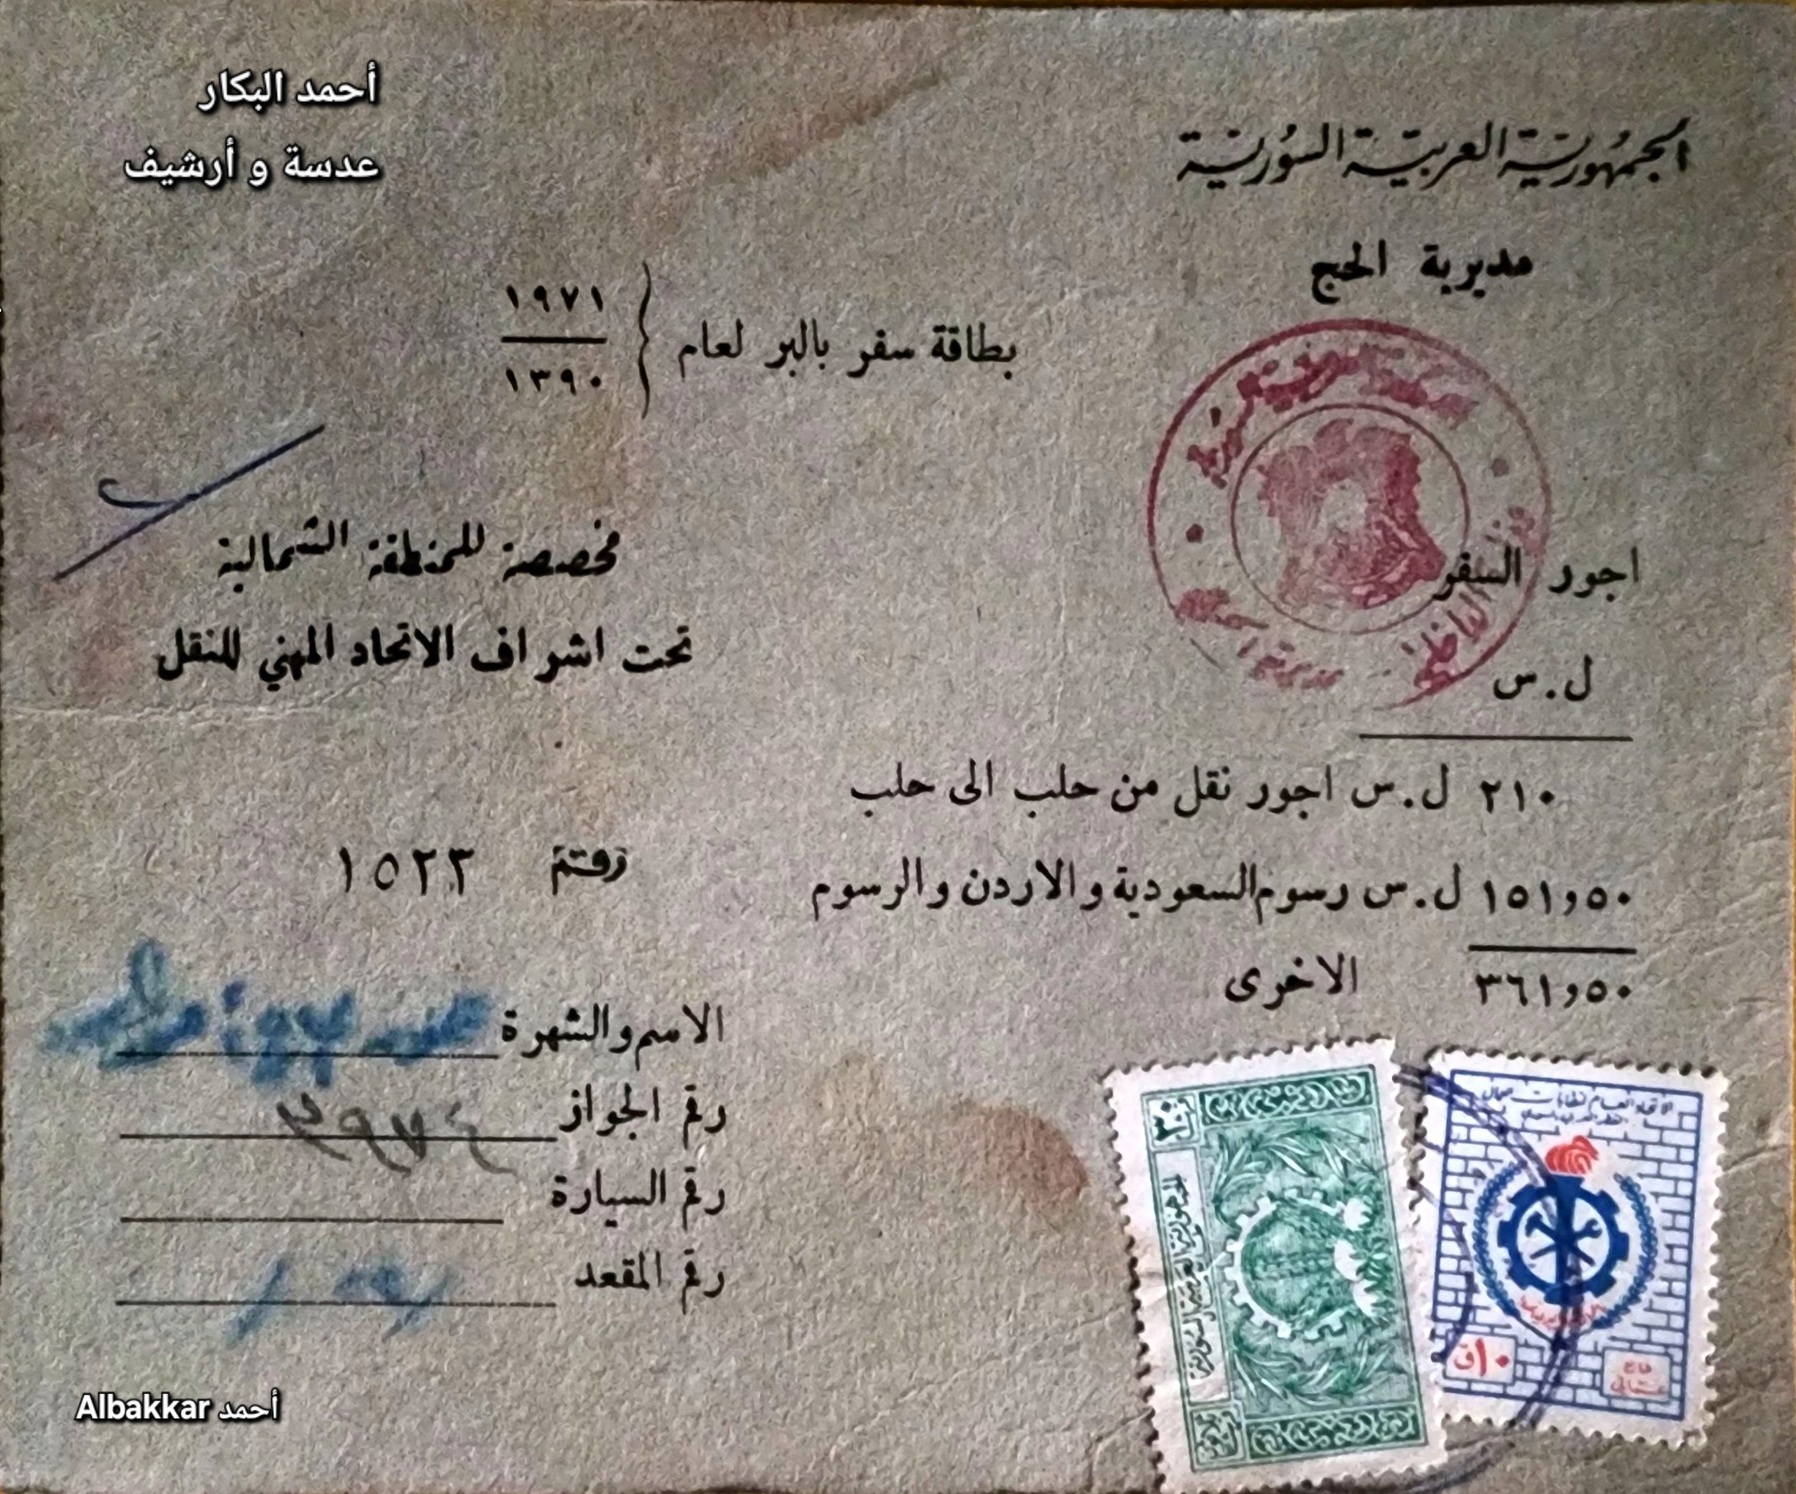 أحمد البكار
عدسة و أرشيف
الجمهورية العربية السورية
مديرية الحج
بطاقة سفر بالبر لعام
١٩٧١
١٣٩٠
مخصصة للمنطقة الشمالية
تحت اشراف الاتحاد المهني للنقل
اجور السفر
ل.س
٢١٠ ل.س اجور نقل من حلب الى حلب
١٥١,٥٠ ل.س رسوم السعودية والاردن والرسوم
الاخرى
٣٦١,٥٠
رقم ١٥٢٣
الاسم والشهرة
رقم الجواز
رقم السيارة
رقم المقعد
٣٠
الجمهورية العربية السورية
الاتحاد العام لنقابات عمال
١٠ق
أحمد Albakkar